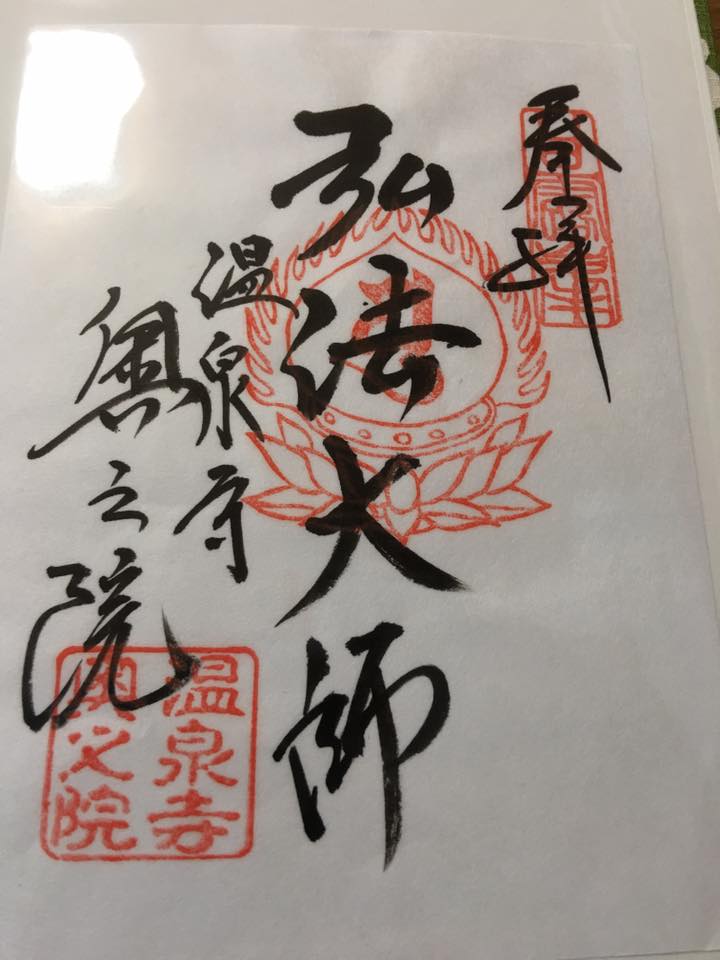 奉拝
弘法大師
温泉寺
奥之院
温泉寺
奥之院